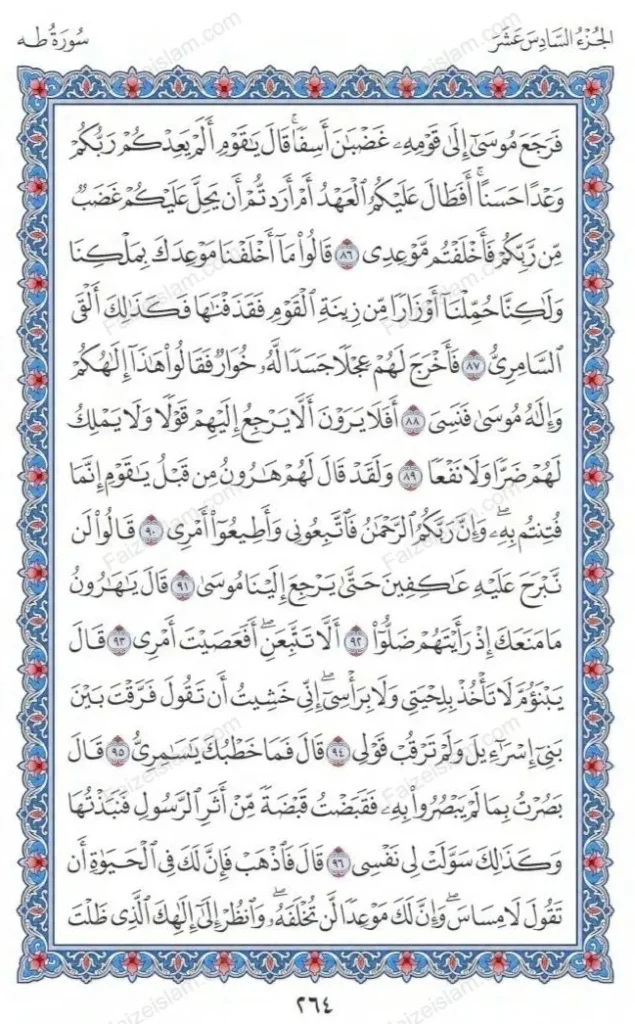 الجزء السادس عشر
سورة طه
فَرَجَعَ مُوسَىٰٓ إِلَىٰ قَوْمِهِۦ غَضْبَٰنَ أَسِفًاۚ قَالَ يَٰقَوْمِ أَلَمْ يَعِدْكُمْ رَبُّكُمْ
وَعْدًا حَسَنًاۚ أَفَطَالَ عَلَيْكُمُ ٱلْعَهْدُ أَمْ أَرَدتُّمْ أَن يَحِلَّ عَلَيْكُمْ غَضَبٌ
مِّن رَّبِّكُمْ فَأَخْلَفْتُم مَّوْعِدِى ٨٦ قَالُوا۟ مَآ أَخْلَفْنَا مَوْعِدَكَ بِمَلْكِنَا
وَلَٰكِنَّا حُمِّلْنَآ أَوْزَارًا مِّن زِينَةِ ٱلْقَوْمِ فَقَذَفْنَٰهَا فَكَذَٰلِكَ أَلْقَى
ٱلسَّامِرِىُّ ٨٧ فَأَخْرَجَ لَهُمْ عِجْلًا جَسَدًا لَّهُۥ خُوَارٌ فَقَالُوا۟ هَٰذَآ إِلَٰهُكُمْ
وَإِلَٰهُ مُوسَىٰ فَنَسِىَ ٨٨ أَفَلَا يَرَوْنَ أَلَّا يَرْجِعُ إِلَيْهِمْ قَوْلًا وَلَا يَمْلِكُ
لَهُمْ ضَرًّا وَلَا نَفْعًا ٨٩ وَلَقَدْ قَالَ لَهُمْ هَٰرُونُ مِن قَبْلُ يَٰقَوْمِ إِنَّمَا
فُتِنتُم بِهِۦۖ وَإِنَّ رَبَّكُمُ ٱلرَّحْمَٰنُ فَٱتَّبِعُونِى وَأَطِيعُوٓا۟ أَمْرِى ٩٠ قَالُوا۟ لَن
نَّبْرَحَ عَلَيْهِ عَٰكِفِينَ حَتَّىٰ يَرْجِعَ إِلَيْنَا مُوسَىٰ ٩١ قَالَ يَٰهَٰرُونُ
مَا مَنَعَكَ إِذْ رَأَيْتَهُمْ ضَلُّوٓا۟ ٩٢ أَلَّا تَتَّبِعَنِۖ أَفَعَصَيْتَ أَمْرِى ٩٣ قَالَ
يَبْنَؤُمَّ لَا تَأْخُذْ بِلِحْيَتِى وَلَا بِرَأْسِىٓۖ إِنِّى خَشِيتُ أَن تَقُولَ فَرَّقْتَ بَيْنَ
بَنِىٓ إِسْرَٰٓءِيلَ وَلَمْ تَرْقُبْ قَوْلِى ٩٤ قَالَ فَمَا خَطْبُكَ يَٰسَٰمِرِىُّ ٩٥ قَالَ
بَصُرْتُ بِمَا لَمْ يَبْصُرُوا۟ بِهِۦ فَقَبَضْتُ قَبْضَةً مِّنْ أَثَرِ ٱلرَّسُولِ فَنَبَذْتُهَا
وَكَذَٰلِكَ سَوَّلَتْ لِى نَفْسِى ٩٦ قَالَ فَٱذْهَبْ فَإِنَّ لَكَ فِى ٱلْحَيَوٰةِ أَن
تَقُولَ لَا مِسَاسَۖ وَإِنَّ لَكَ مَوْعِدًا لَّن تُخْلَفَهُۥۖ وَٱنظُرْ إِلَىٰٓ إِلَٰهِكَ ٱلَّذِى ظَلْتَ
٢٦٤
Faizeislam.com